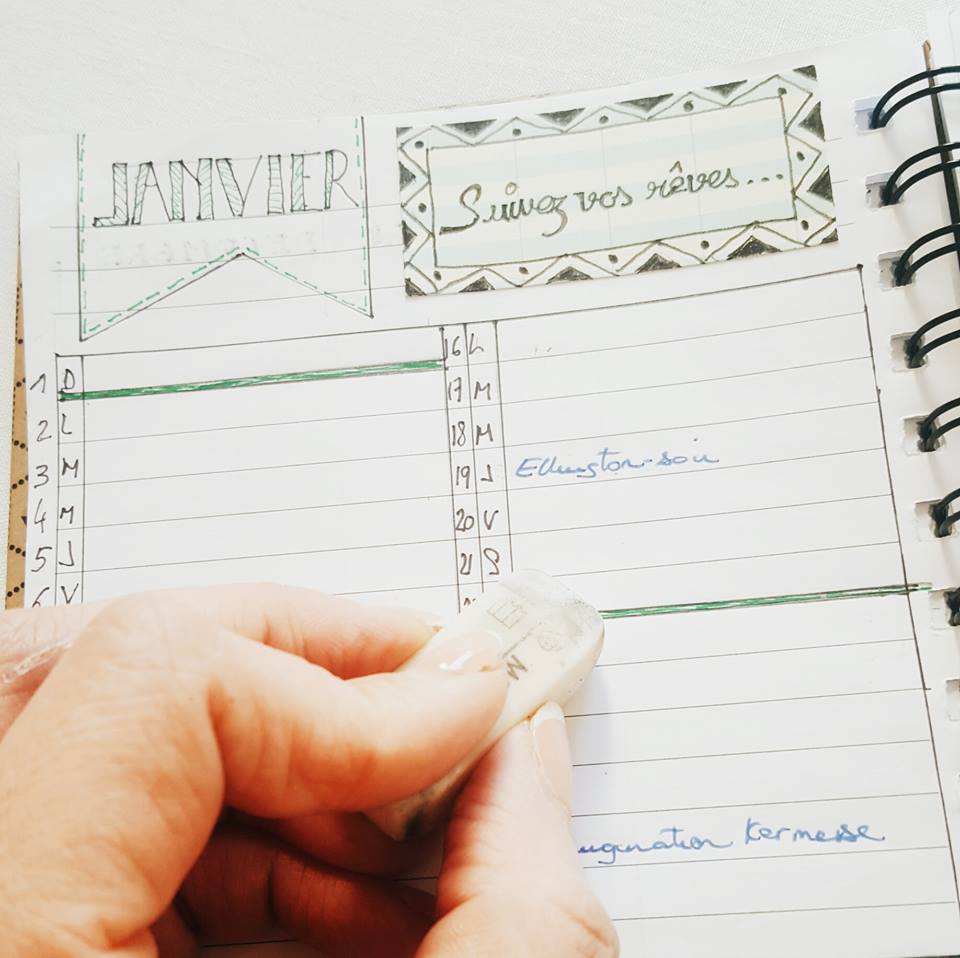 JANVIER
Suivez vos rêves...
1 D
2 L
3 M
4 M
5 J
6 V
16 L
17 M
18 M
19 J Ellington-soir
20 V
21 S
Kermesse